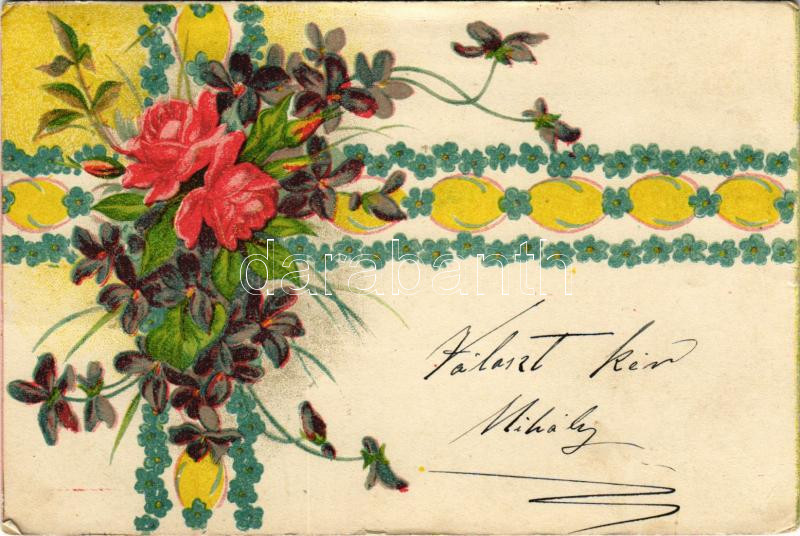 darabanth
Választ kér
Mihály